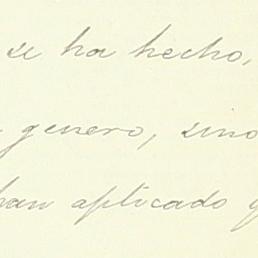 se ha hecho,
genero, sino
han aplicado